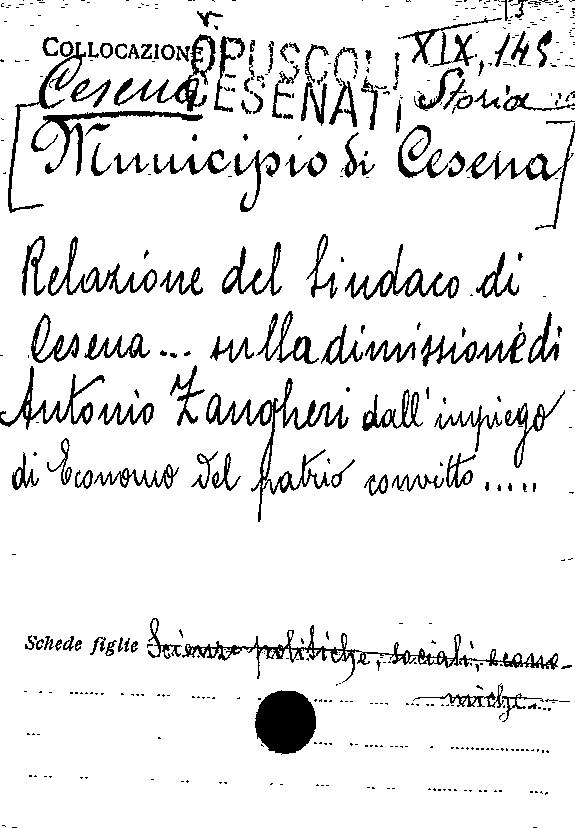 COLLOCAZIONE OPUSCOLI XIX, 145
Cesena CESENATI Storia
[Municipio di Cesena]
Relazione del Sindaco di
Cesena... sulla dimissione di
Antonio Zangheri dall'impiego
di Economo del patrio convitto.....
Schede figlie Scienze politiche, sociali, econo-
miche